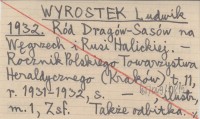 WYROSTEK Ludwik
1932. Ród Dragów-Sasów na
Węgrzech i Rusi Halickiej. —
Rocznik Polskiego Towarzystwa
Heraldycznego (Kraków) t. 11,
r. 1931-1932, s. — , ilustr,
m. 1, Zsf. Także odbitka.